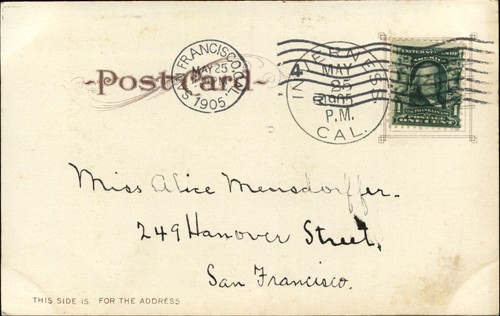 Post Card
SAN FRANCISCO, CAL.
MAY 25
1905
INVERNESS
MAY
25
1905
P.M.
CAL.
4
FRANKLIN
POSTAGE
ONE CENT
Miss Alice Mensdorffer
249 Hanover Street,
San Francisco.
THIS SIDE IS FOR THE ADDRESS